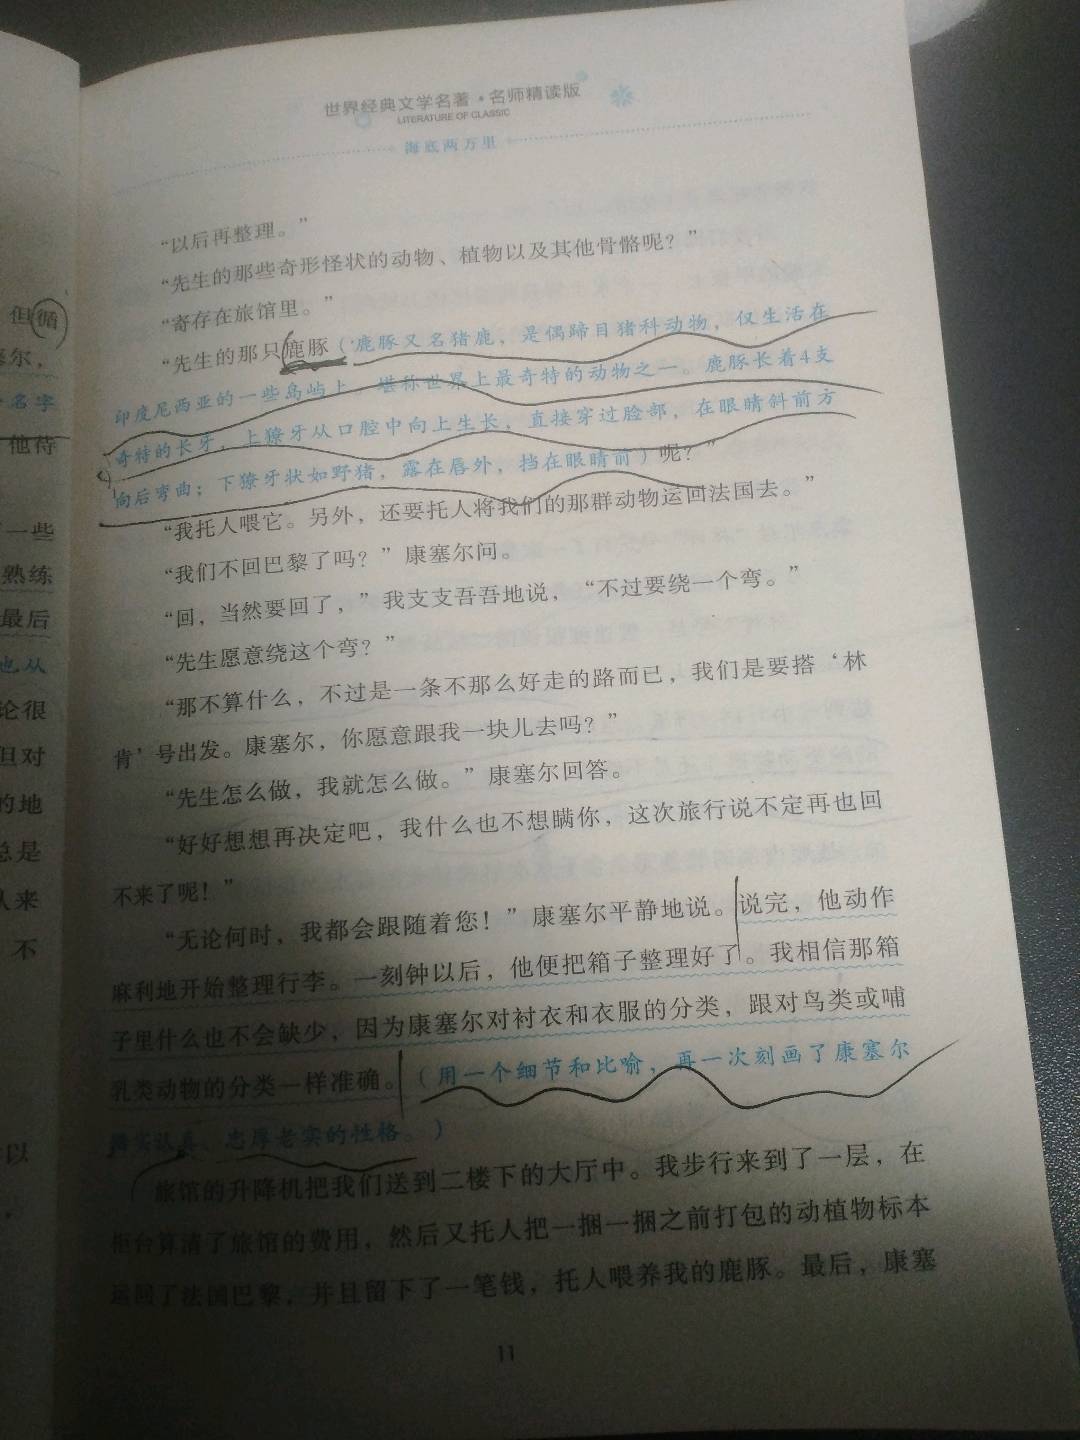 世界经典文学名著·名师精读版
LITERATURE OF CLASSIC
海底两万里
“以后再整理。”
“先生的那些奇形怪状的动物、植物以及其他骨骼呢？”
“寄存在旅馆里。”
“先生的那只鹿豚（鹿豚又名猪鹿，是偶蹄目猪科动物，仅生活在
印度尼西亚的一些岛屿上，堪称世界上最奇特的动物之一。鹿豚长着4支
奇特的长牙，上獠牙从口腔中向上生长，直接穿过脸部，在眼睛斜前方
向后弯曲；下獠牙状如野猪，露在唇外，挡在眼睛前）呢？”
“我托人喂它。另外，还要托人将我们的那群动物运回法国去。”
“我们不回巴黎了吗？”康塞尔问。
“回，当然要回了，”我支支吾吾地说，“不过要绕一个弯。”
“先生愿意绕这个弯？”
“那不算什么，不过是一条不那么好走的路而已，我们是要搭‘林
肯’号出发。康塞尔，你愿意跟我一块儿去吗？”
“先生怎么做，我就怎么做。”康塞尔回答。
“好好想想再决定吧，我什么也不想瞒你，这次旅行说不定再也回
不来了呢！”
“无论何时，我都会跟随着您！”康塞尔平静地说。说完，他动作
麻利地开始整理行李。一刻钟以后，他便把箱子整理好了。我相信那箱
子里什么也不会缺少，因为康塞尔对衬衣和衣服的分类，跟对鸟类或哺
乳类动物的分类一样准确。（用一个细节和比喻，再一次刻画了康塞尔
实认真、忠厚老实的性格。）
旅馆的升降机把我们送到二楼下的大厅中。我步行来到了一层，在
柜台算清了旅馆的费用，然后又托人把一捆一捆之前打包的动植物标本
运回了法国巴黎，并且留下了一笔钱，托人喂养我的鹿豚。最后，康塞
11
但循
塞尔，
名字
他待
一些
熟练
最后
也从
论很
但对
的地
总是
从来
不
以